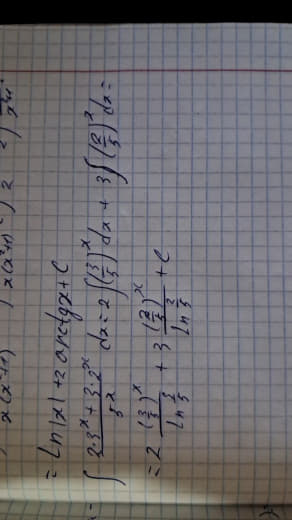 = ln|x| + 2 arctgx + C
∫ (2·3^x + 3·2^x)/5^x dx = 2∫(3/5)^x dx + 3∫(2/5)^x dx =
= 2 (3/5)^x / ln 3/5 + 3 (2/5)^x / ln 2/5 + C